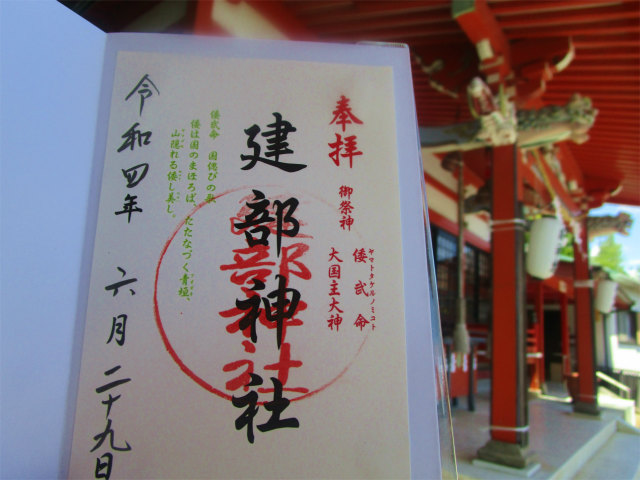 奉拝
御祭神
倭武命
ヤマトタケルノミコト
大国主大神
建部神社
建部神社
倭武命 国偲びの歌
倭は国のまほろば、たたなづく青垣
山隠れる倭し美し。
令和四年 六月二十九日